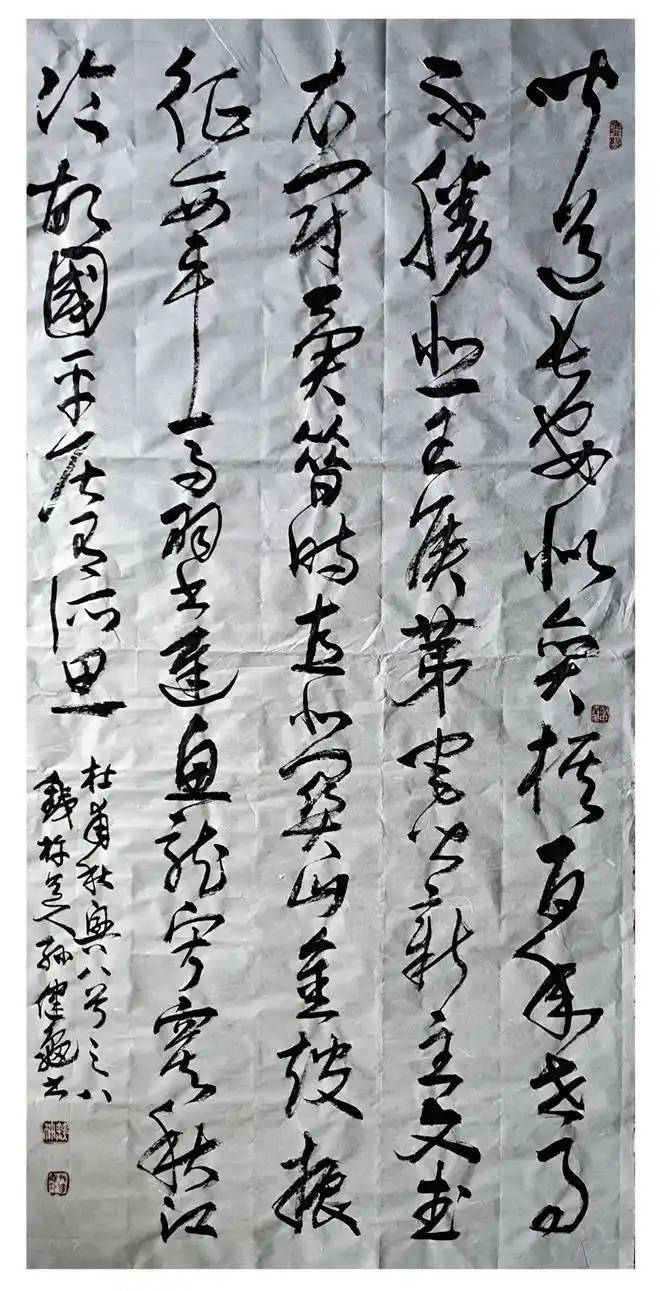 聞道長安似奕棋百年世事
不勝悲王侯第宅皆新主文武
衣冠異昔時直北關山金鼓振
征西車馬羽書遲魚龍寂寞秋江
冷故國平居有所思
杜甫秋興八首之八
道人孫健書